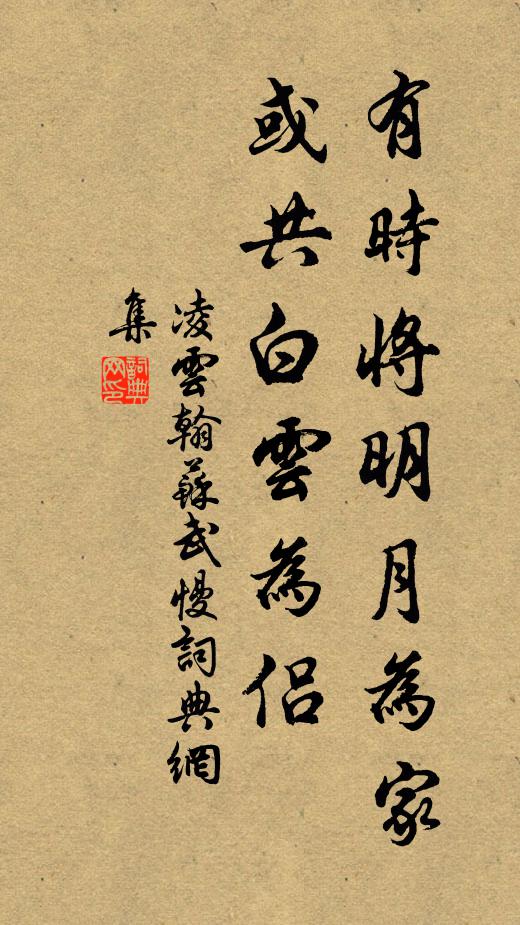 有時將明月為家
或共白雲為侶
凌雲翰蘇武慢詞典網
集
詞典網印